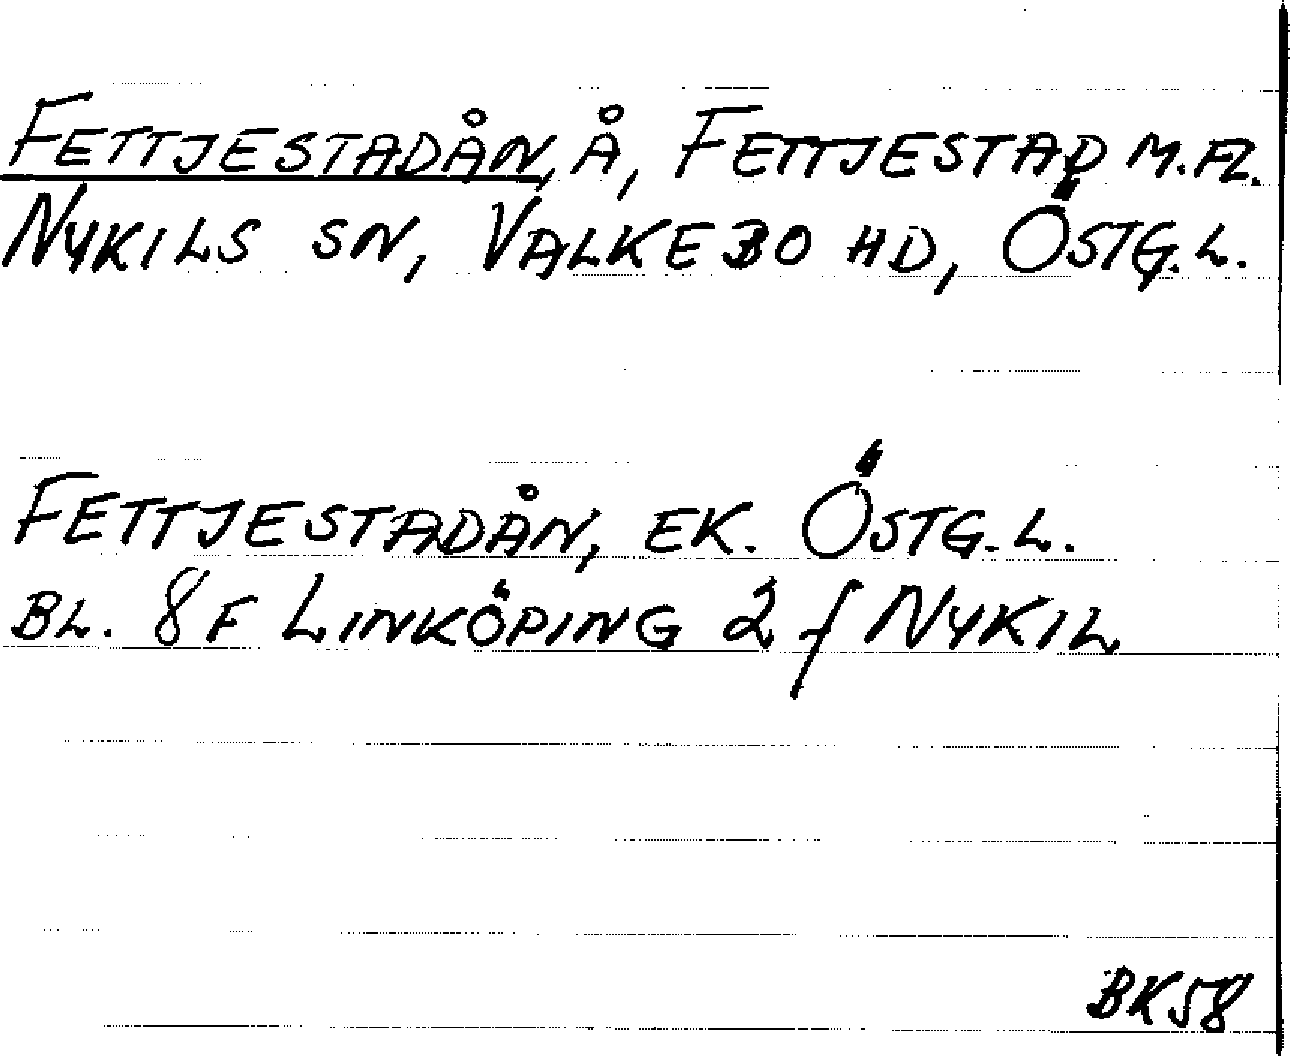 FETTJESTADÅN, Å, FETTJESTAD M.FL.
NYKILS SN, VALKEBO HD, ÖSTG.L.
FETTJESTADÅN, EK. ÖSTG.L.
BL. 8F LINKÖPING 2f NYKIL
BK58